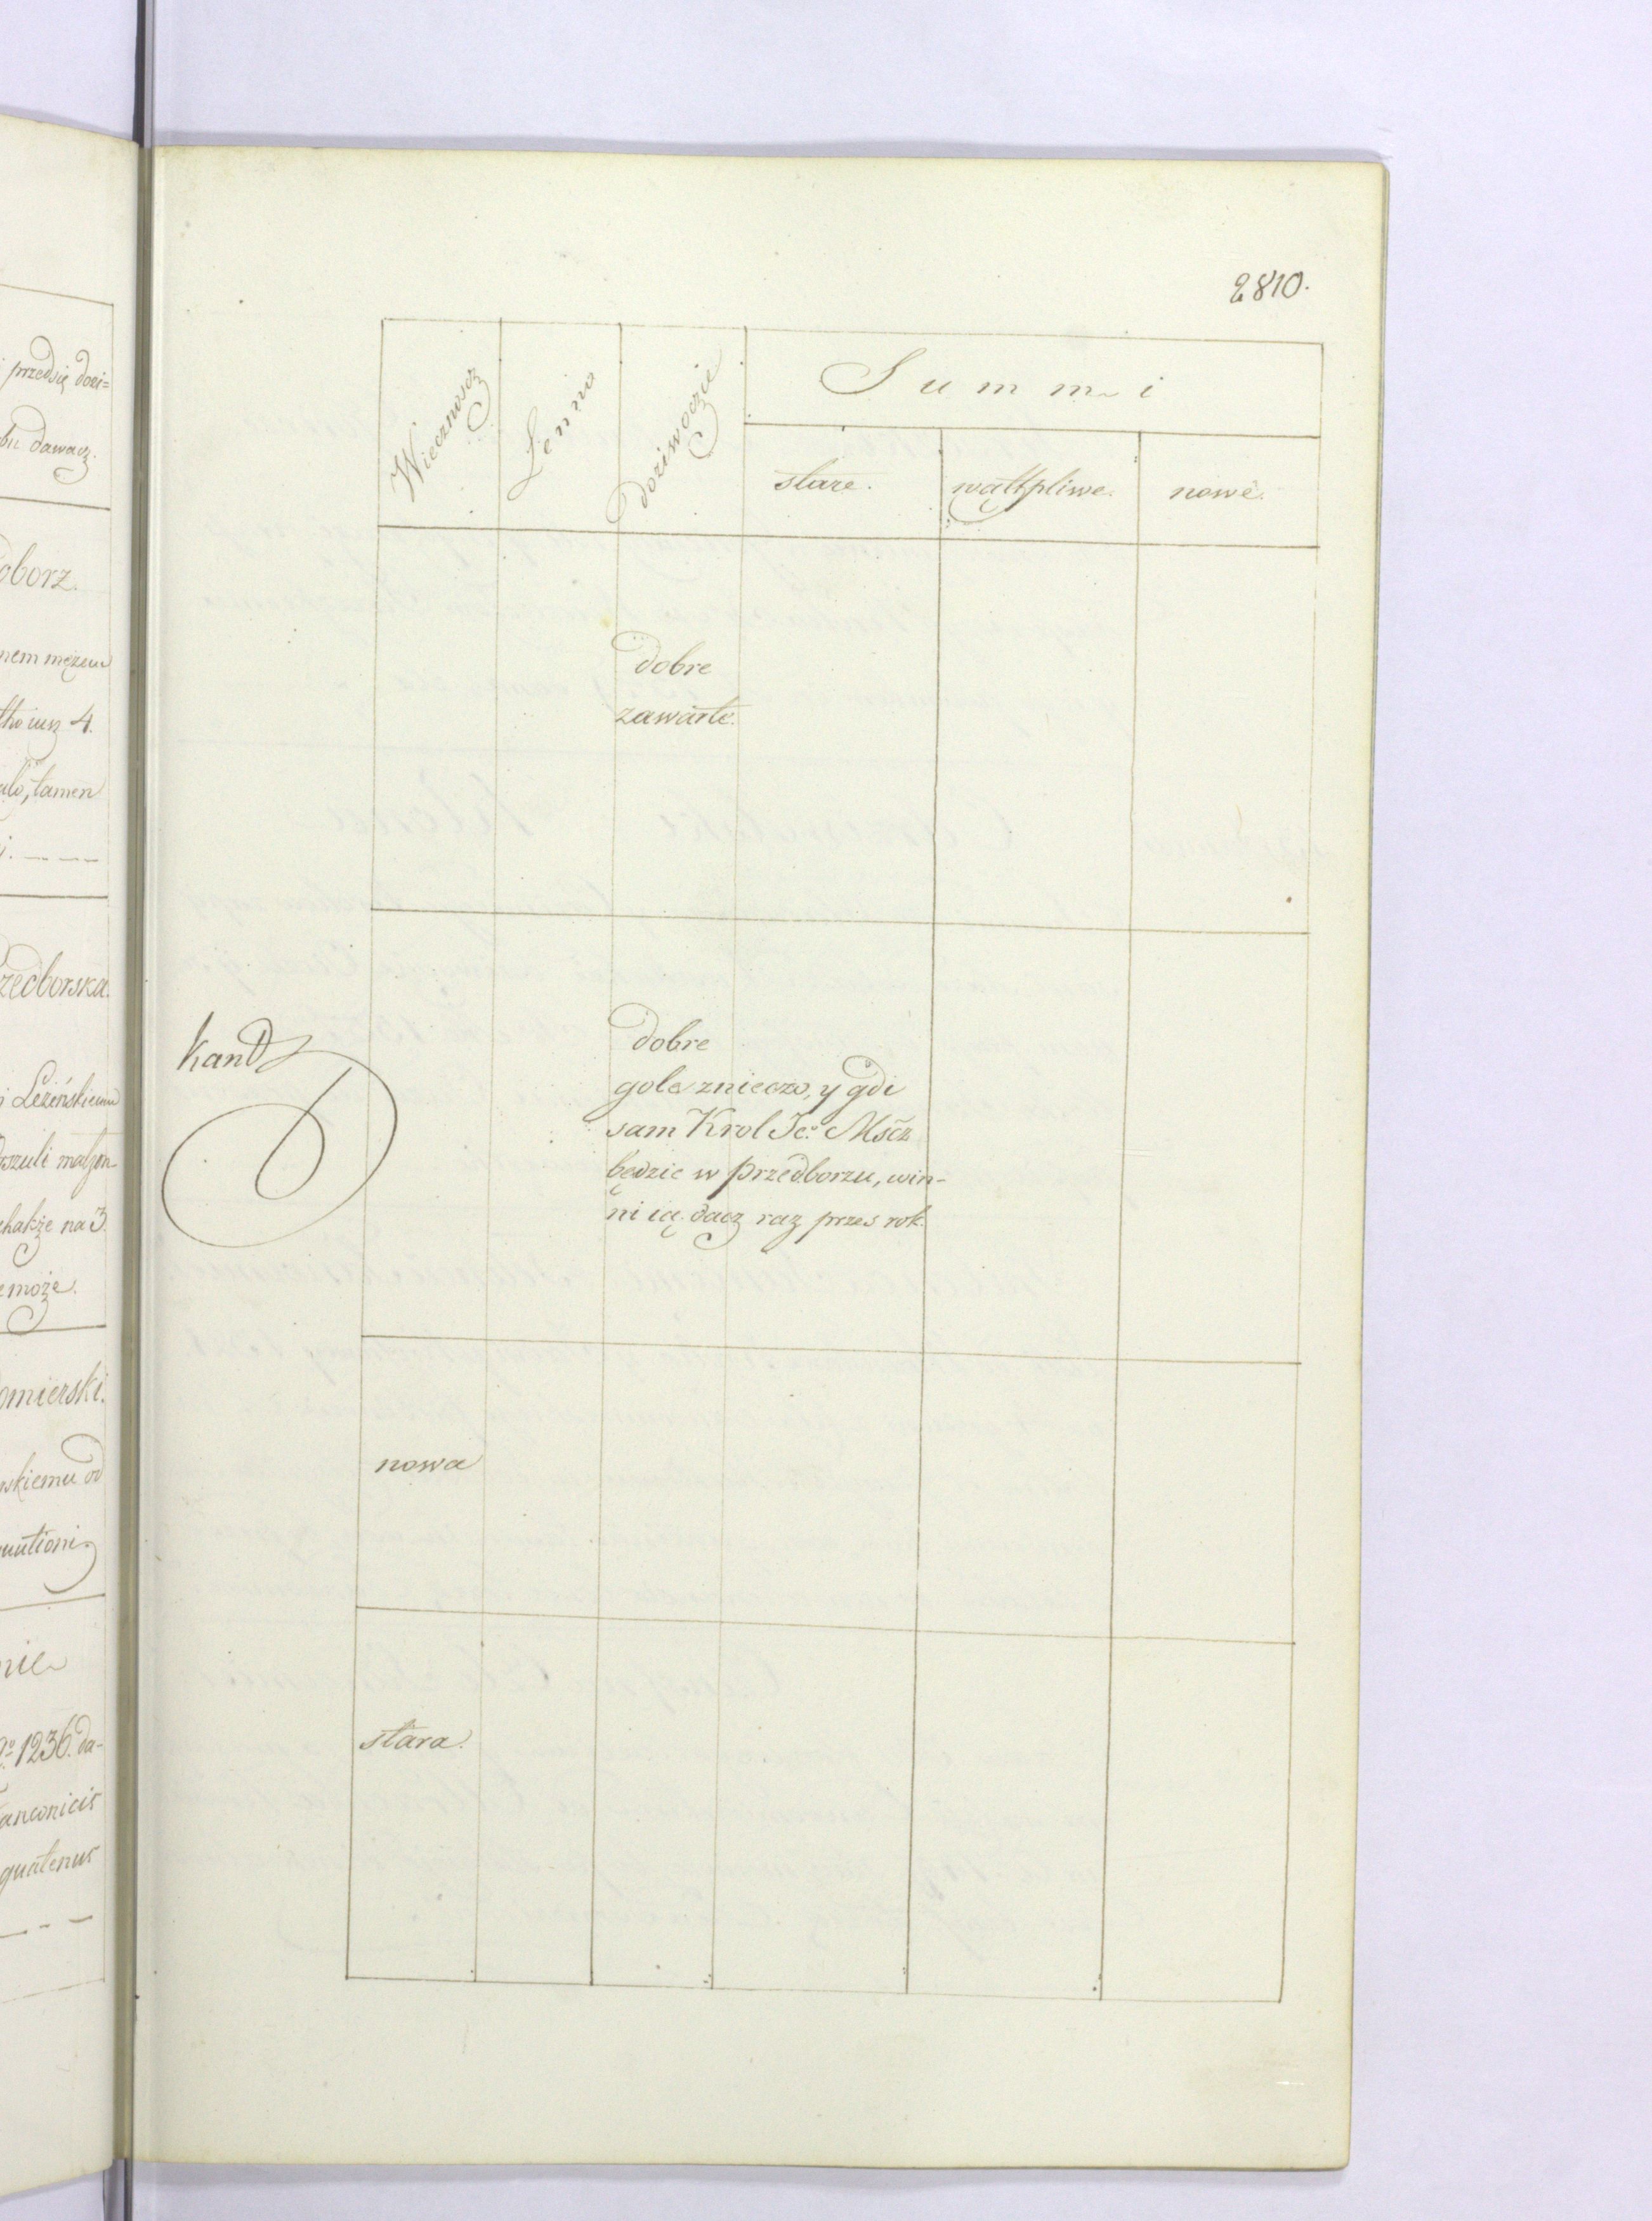 przedsię dozi=
bu dawacz.
oborz.
nem mężem
tho iusz 4.
alo, tamen
zedborska.
i Leżeńskiemu
rszuli małżon
thakże na 3.
emoże.
omierski.
wskiemu od
nie
1236. da-
quatenus
2810.
Wiecznoscz
Lenno
Doziwoczie
Summi
stare.
wąttpliwe.
nowe.
dobre
zawarte.
Kand
dobre
gole znieczo, y gdi
sam Krol Je.º Mscz
będzie w przedborzu, win-
ni ią dacz raz przes rok.
nowa
stara.